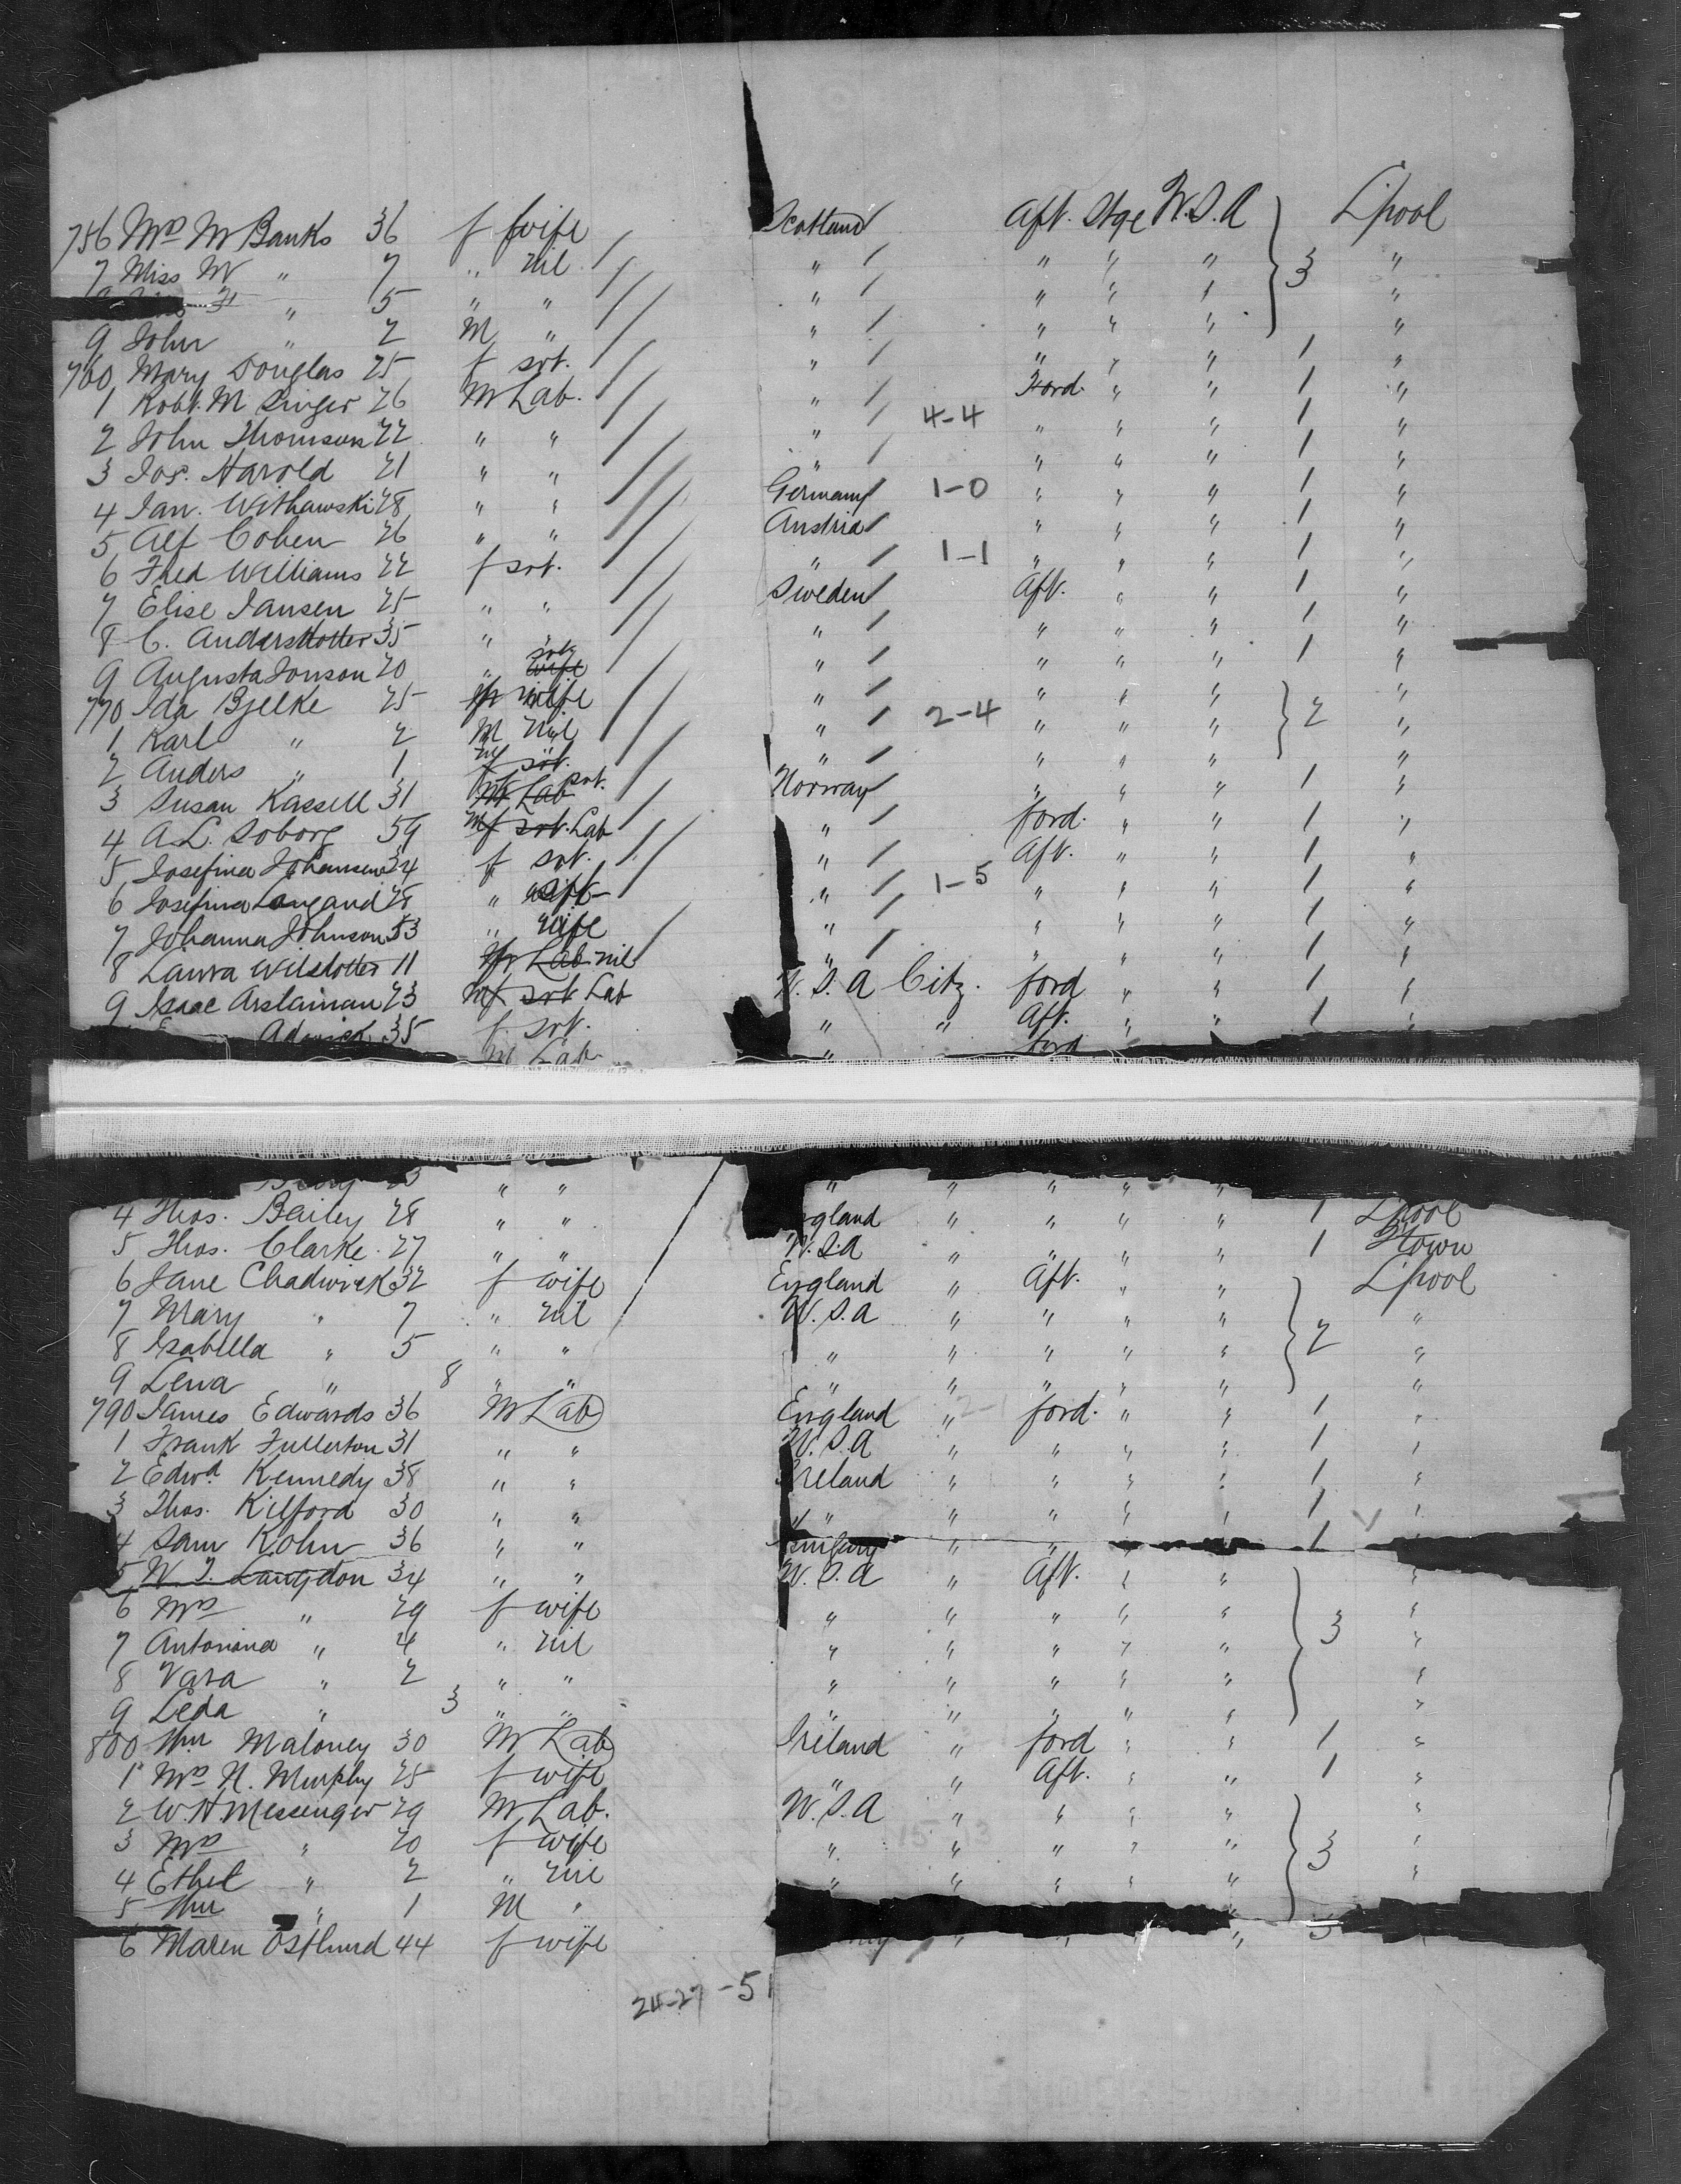 756 Mrs M Banks 36 f wife Scotland Aft. Stge U.S.A 3 L'pool
7 Miss M " 7 " nil " " " " "
" 5 " " " " " " "
9 John " 2 M " " " " " "
760 Mary Douglas 25 f svt. " " " " 1 "
1 Robt. M Singer 26 M Lab. " Ford. " " 1 "
2 John Thomson 22 " " " 4-4 " " " 1 "
3 Jos. Harold 21 " " " " " " 1 "
4 Jan. Withawski 28 " " Germany 1-0 " " " 1 "
5 Alf Cohen 26 " " Austria " " " 1 "
6 Fred Williams 22 f svt. " 1-1 " " " 1 "
7 Elise Jansen 25 " " Sweden Aft. " " 1 "
8 C. Andersdotter 35 " " " " " 1 "
9 Augusta Jonson 20 " svt wife " " " " 1 "
770 Ida Bjelke 25 f wife " " " " 2 "
1 Karl " 2 M nil " 2-4 " " " "
2 Anders " 1 svt. " " " " "
3 Susan Kassell 31 f Lab svt. Norway " " " 1 "
4 A.L. Soborg 59 M svt. Lab " ford. " " 1 "
5 Josefina Johansen 34 f svt. " Aft. " " 1 "
6 Josefina Langaard 28 " wife " 1-5 " " " 1 "
7 Johanna Johnson 53 " wife " " " " 1 "
8 Laura Wilsdotter 11 Lab. nil " " " " 1 "
9 Isaac Arslainan 23 M svt Lab U.S.A Citz. ford " " 1 "
35 f. svt. " " Aft. " " 1 "
M Lab " ford
" " " " " " "
4 Thos. Bailey 28 " " gland " " " " 1 L'pool
5 Thos. Clarke 27 " " U.S.A " " " " 1 Q'town
6 Jane Chadwick 32 f wife England " Aft. " " 2 L'pool
7 Mary " 7 " nil U.S.A " " " " "
8 Isabella " 5 " " " " " " " "
9 Lena " 8 " " " " " " " "
790 James Edwards 36 M Lab England " ford. " " 1 "
1 Frank Fullerton 31 " " U.S.A " " " " 1 "
2 Edwd Kennedy 38 " " Ireland " " " " 1 "
3 Thos. Kilford 30 " " " " " " " 1 "
4 Sam Kohn 36 " " " " " " 1 "
5 W. J. Langdon 34 " " U.S.A " Aft. " " 3 "
6 Mrs " 29 f wife " " " " " "
7 Antonina " 4 " nil " " " " " "
8 Vara " 2 " " " " " " " "
9 Leda " 3 " " " " " " " "
800 Wm Maloney 30 M Lab Ireland " ford " " 1 "
1 Mrs N. Murphy 25 f wife " " Aft. " " 1 "
2 W.H. Messenger 29 M Lab. U.S.A " " " " 3 "
3 Mrs " 20 f wife " " " " " "
4 Ethel " 2 " nil " " " " " "
5 Wm " 1 M "
6 Maren Ostlund 44 f wife
24-27 -51